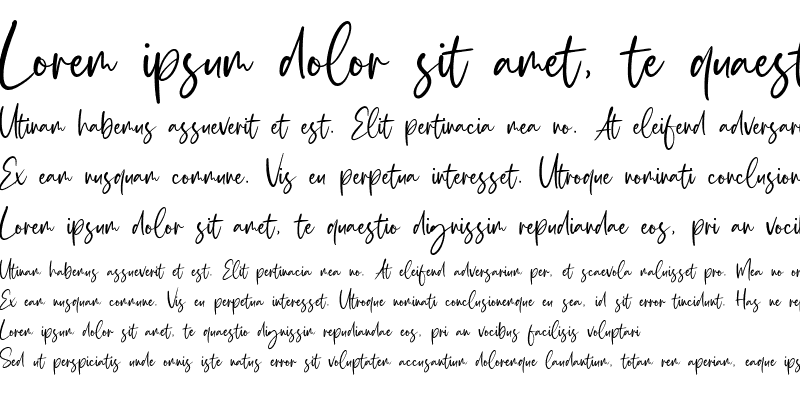 Lorem ipsum dolor sit amet, te quaest
Utinam habemus assueverit et est. Elit pertinacia mea no. At eleifend adversari
Ex eam nusquam commune. Vis eu perpetua interesset. Utroque nominati conclusion
Lorem ipsum dolor sit amet, te quaestio dignissim repudiandae eos, pri an vocib
Utinam habemus assueverit et est. Elit pertinacia mea no. At eleifend adversarium per, et scaevola maluisset pro. Mea no or
Ex eam nusquam commune. Vis eu perpetua interesset. Utroque nominati conclusionemque eu sea, id sit error tincidunt. Has ne rep
Lorem ipsum dolor sit amet, te quaestio dignissim repudiandae eos, pri an vocibus facilisis voluptari
Sed ut perspiciatis unde omnis iste natus error sit voluptatem accusantium doloremque laudantium, totam rem aperiam, eaque ips